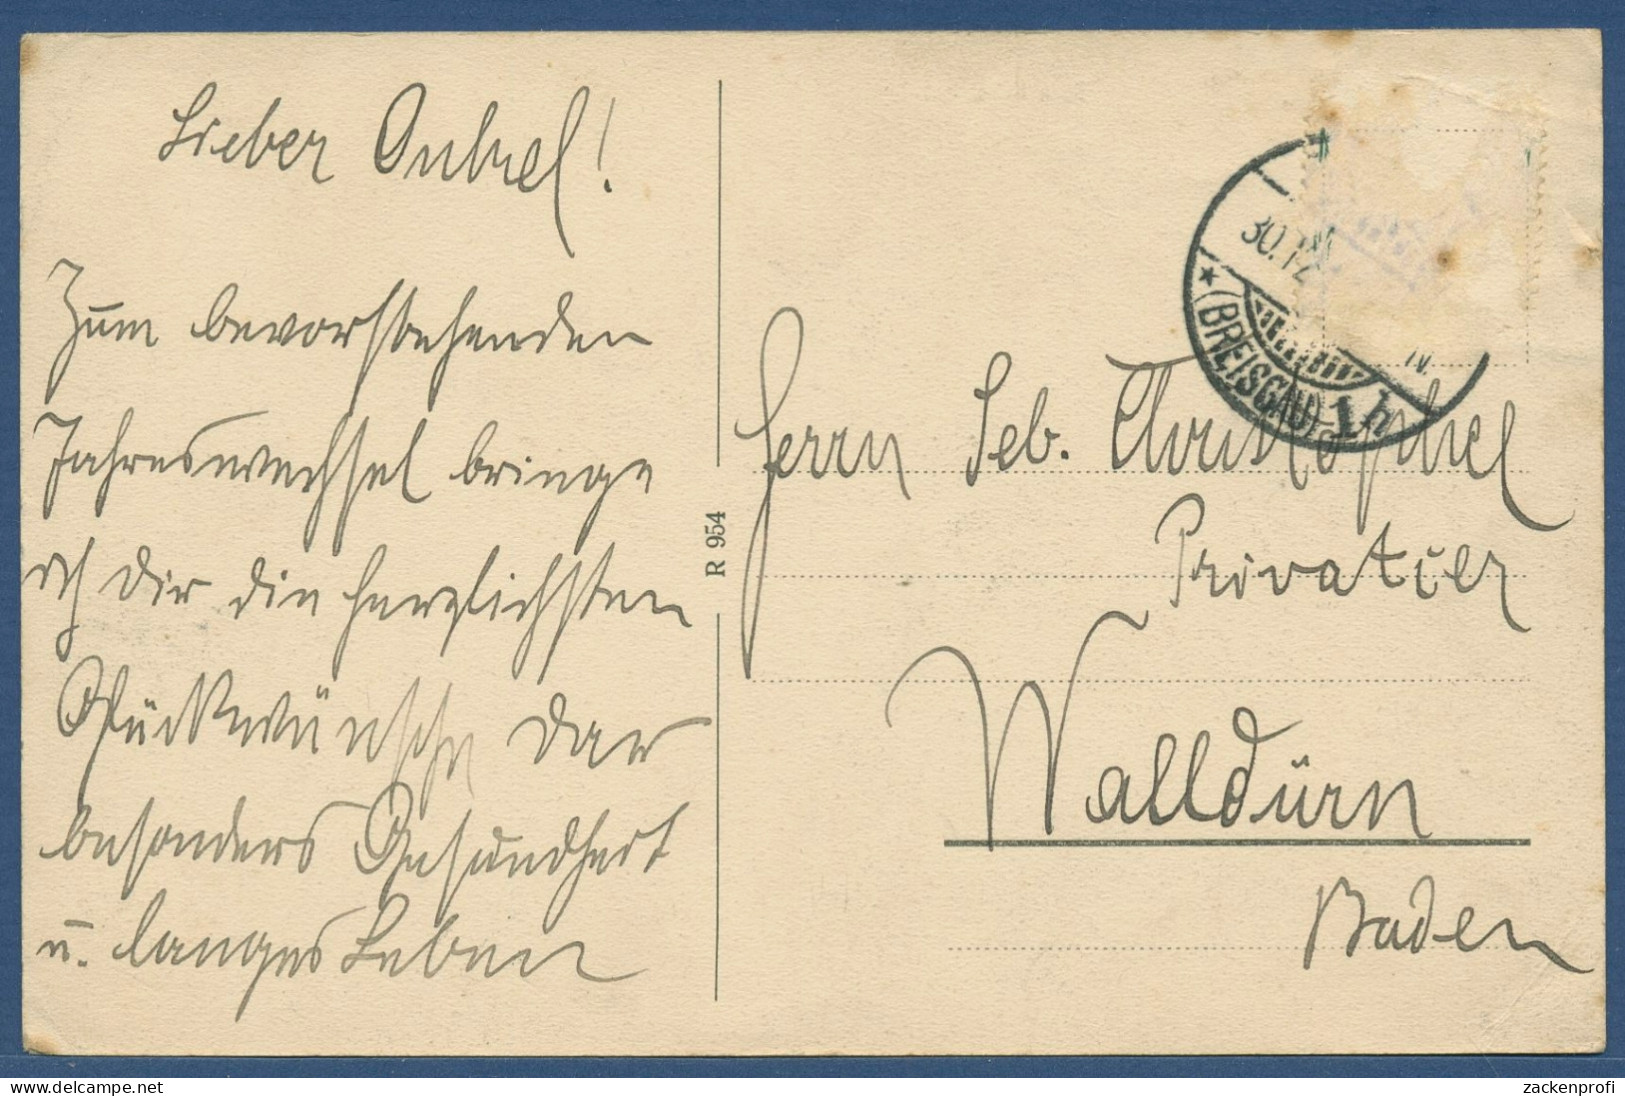 Lieber Onkel!
Zum bevorstehenden
Jahreswechsel bringe
ich dir die herzlichsten
Glückwünsche dar
besonders Gesundheit
u. langes Leben
R 954
30.12
(BREISGAU) 1 h
Herrn Seb. Christophel
Privatier
Walldürn
Baden
www.delcampe.net
zackenprofi